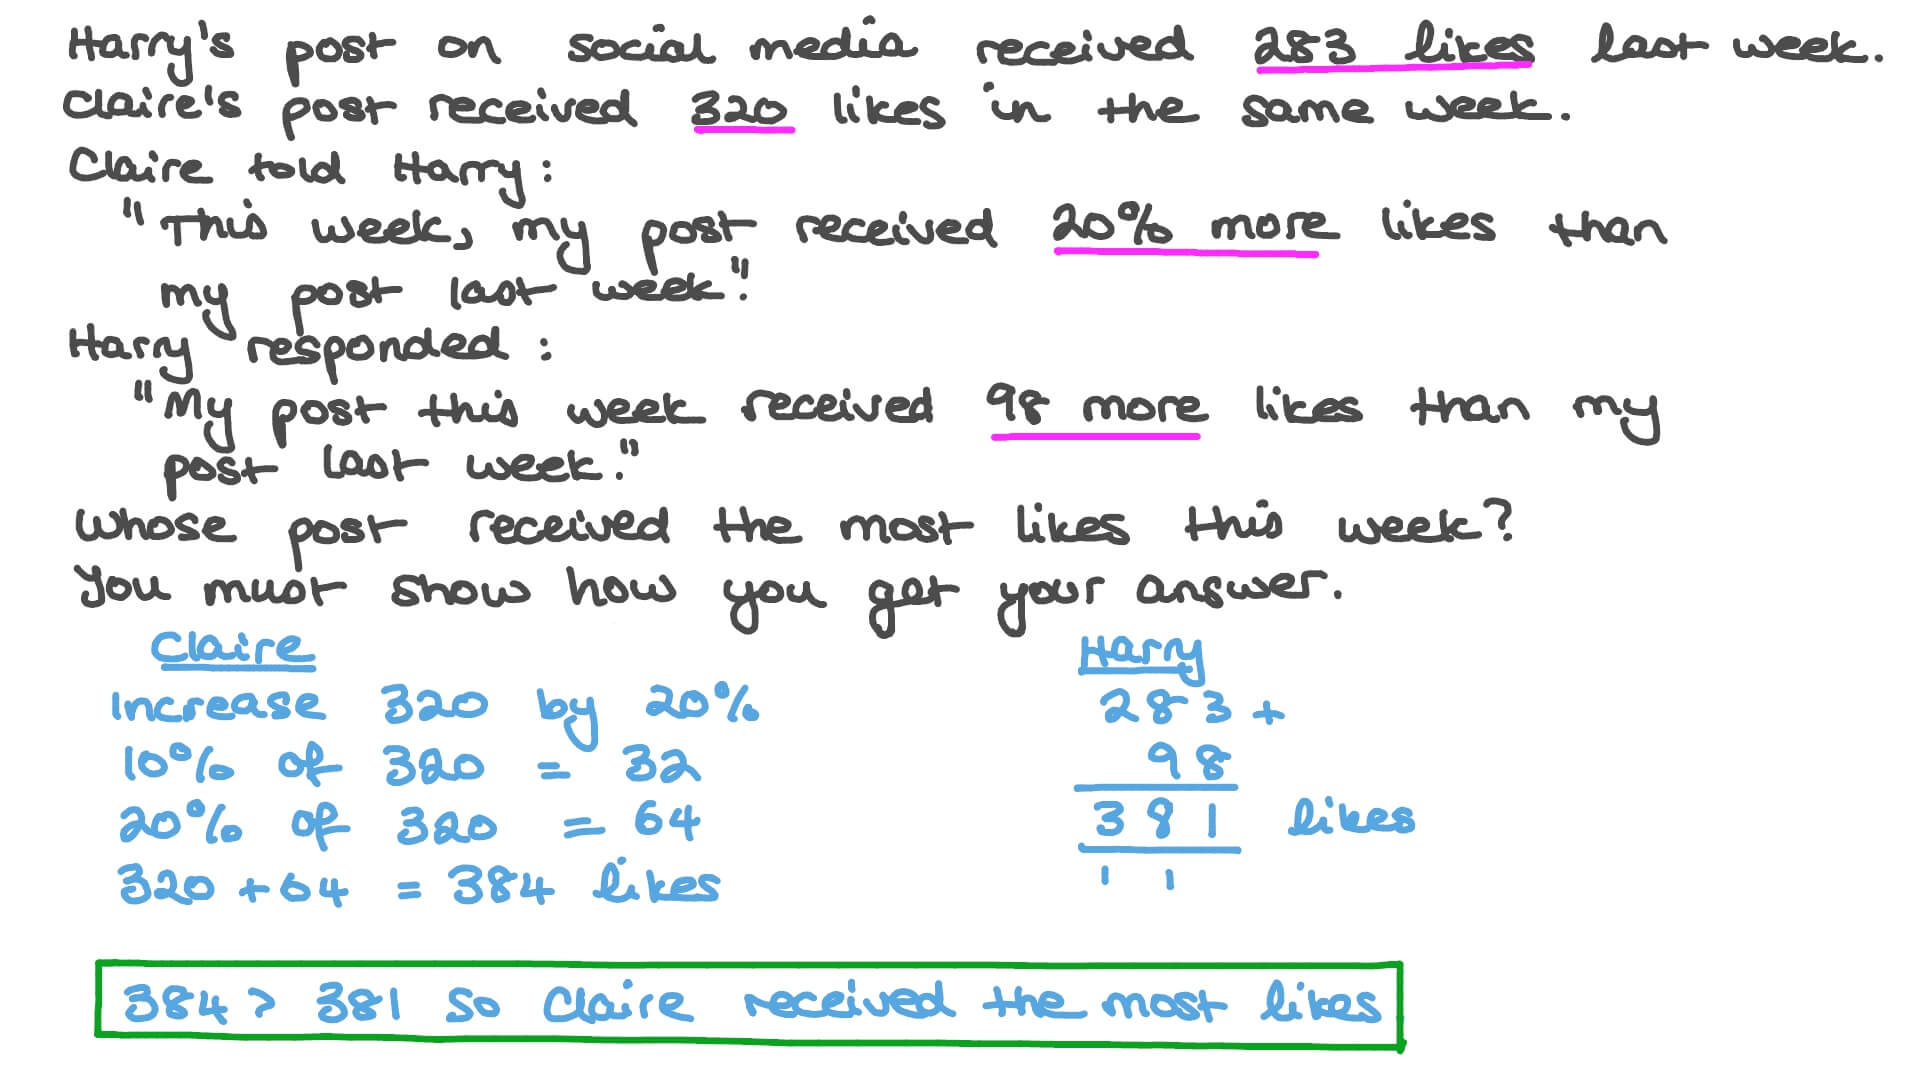 Harry's post on social media received 283 likes last week.
Claire's post received 320 likes in the same week.
Claire told Harry:
"This week, my post received 20% more likes than
my post last week".
Harry responded:
"My post this week received 98 more likes than my
post last week."
Whose post received the most likes this week?
You must show how you get your answer.
Claire
Increase 320 by 20%
10% of 320 = 32
20% of 320 = 64
320 + 64 = 384 likes
Harry
283 +
98
381 likes
1 1
384 > 381 so Claire received the most likes